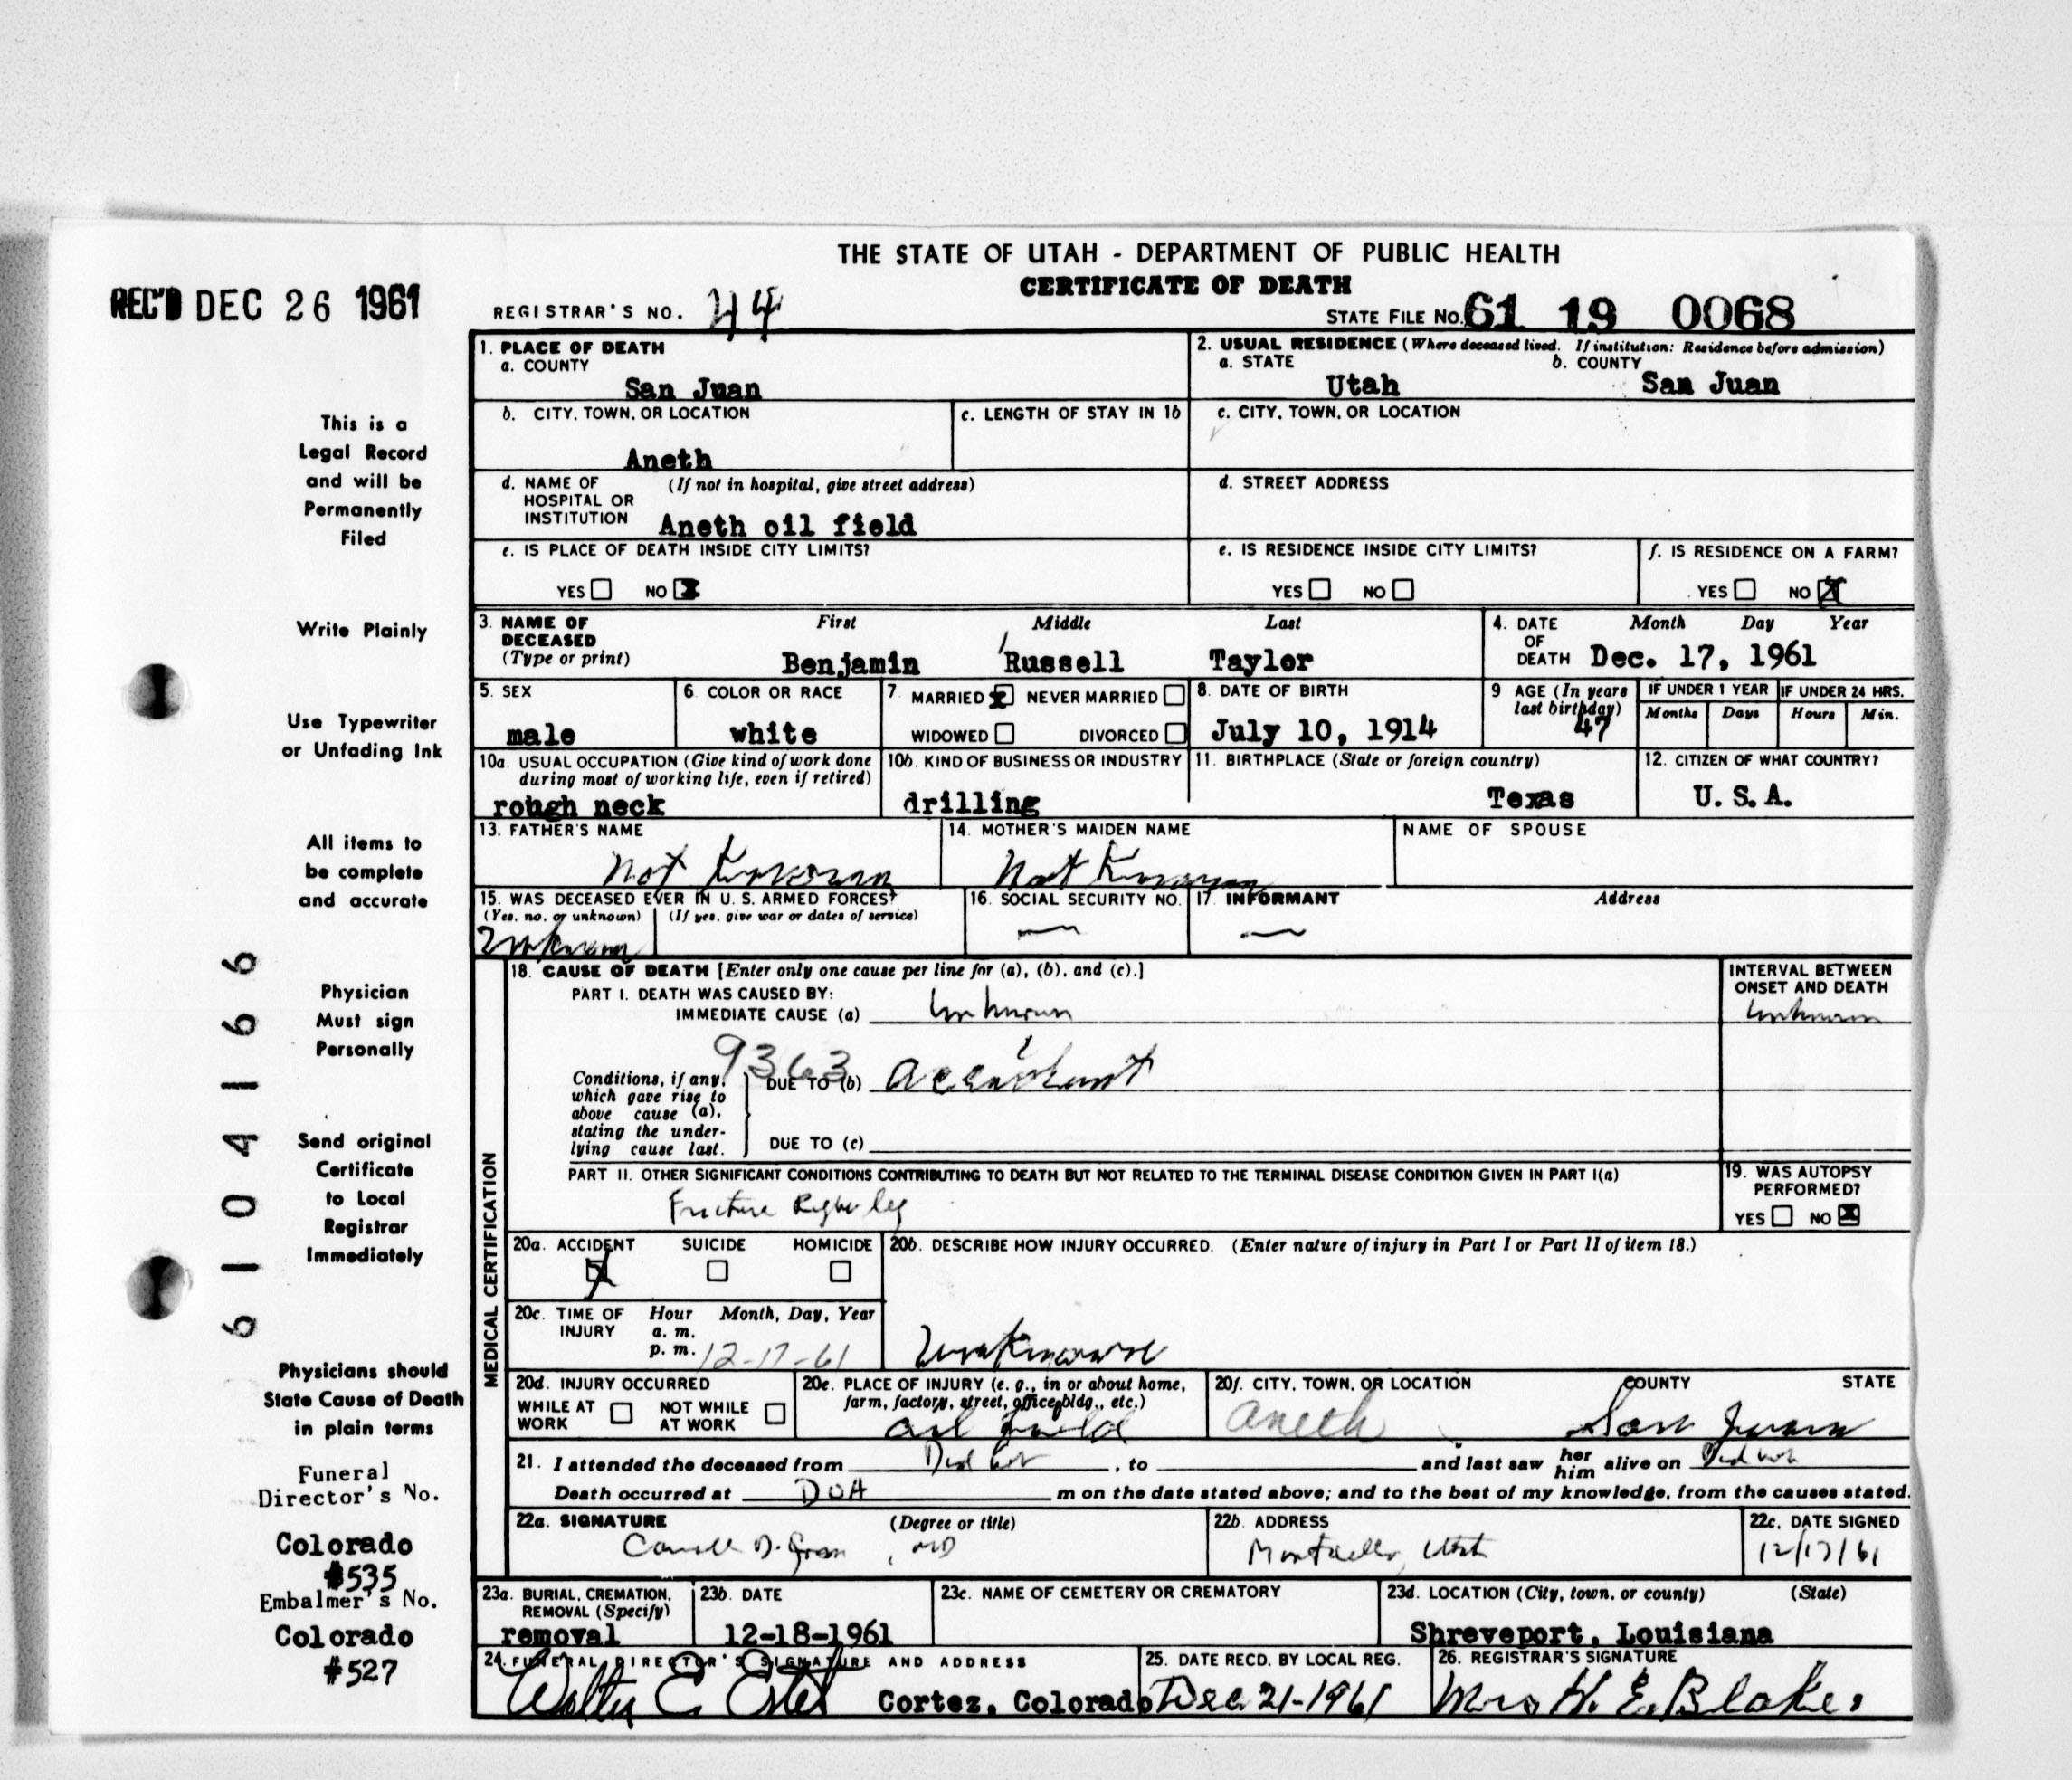 THE STATE OF UTAH - DEPARTMENT OF PUBLIC HEALTH
CERTIFICATE OF DEATH
REC'D DEC 26 1961
REGISTRAR'S NO. 44
STATE FILE NO. 61 19 0068
This is a
Legal Record
and will be
Permanently
Filed
Write Plainly
Use Typewriter
or Unfading Ink
All items to
be complete
and accurate
Physician
Must sign
Personally
Send original
Certificate
to Local
Registrar
Immediately
Physicians should
State Cause of Death
in plain terms
Funeral
Director's No.
Colorado
#535
Embalmer's No.
Colorado
#527
6104166
1. PLACE OF DEATH
a. COUNTY
San Juan
2. USUAL RESIDENCE (Where deceased lived. If institution: Residence before admission)
a. STATE b. COUNTY
Utah San Juan
b. CITY, TOWN, OR LOCATION
Aneth
c. LENGTH OF STAY IN 1b
c. CITY, TOWN, OR LOCATION
d. NAME OF (If not in hospital, give street address)
HOSPITAL OR
INSTITUTION Aneth oil field
d. STREET ADDRESS
e. IS PLACE OF DEATH INSIDE CITY LIMITS?
YES NO X
e. IS RESIDENCE INSIDE CITY LIMITS?
YES NO
f. IS RESIDENCE ON A FARM?
YES NO X
3. NAME OF First Middle Last
DECEASED
(Type or print) Benjamin Russell Taylor
4. DATE Month Day Year
OF
DEATH Dec. 17, 1961
5. SEX
male
6. COLOR OR RACE
white
7. MARRIED X NEVER MARRIED
WIDOWED DIVORCED
8. DATE OF BIRTH
July 10, 1914
9 AGE (In years
last birthday)
47
IF UNDER 1 YEAR IF UNDER 24 HRS.
Months Days Hours Min.
10a. USUAL OCCUPATION (Give kind of work done
during most of working life, even if retired)
rough neck
10b. KIND OF BUSINESS OR INDUSTRY
drilling
11. BIRTHPLACE (State or foreign country)
Texas
12. CITIZEN OF WHAT COUNTRY?
U.S.A.
13. FATHER'S NAME
Not Known
14. MOTHER'S MAIDEN NAME
Not Known
NAME OF SPOUSE
15. WAS DECEASED EVER IN U. S. ARMED FORCES?
(Yes, no, or unknown) (If yes, give war or dates of service)
Unknown
16. SOCIAL SECURITY NO.
—
17. INFORMANT Address
—
MEDICAL CERTIFICATION
18. CAUSE OF DEATH [Enter only one cause per line for (a), (b), and (c).]
PART I. DEATH WAS CAUSED BY:
IMMEDIATE CAUSE (a) Unknown
INTERVAL BETWEEN
ONSET AND DEATH
Unknown
9363
Conditions, if any,
which gave rise to
above cause (a),
stating the under-
lying cause last.
DUE TO (b) Accident
DUE TO (c)
PART II. OTHER SIGNIFICANT CONDITIONS CONTRIBUTING TO DEATH BUT NOT RELATED TO THE TERMINAL DISEASE CONDITION GIVEN IN PART I(a)
Fracture Right leg
19. WAS AUTOPSY
PERFORMED?
YES NO X
20a. ACCIDENT SUICIDE HOMICIDE
X
20b. DESCRIBE HOW INJURY OCCURRED. (Enter nature of injury in Part I or Part II of item 18.)
Unknown
20c. TIME OF Hour Month, Day, Year
INJURY a. m.
p. m. 12-17-61
20d. INJURY OCCURRED
WHILE AT NOT WHILE
WORK AT WORK
20e. PLACE OF INJURY (e. g., in or about home,
farm, factory, street, office bldg., etc.)
Oil field
20f. CITY, TOWN, OR LOCATION COUNTY STATE
Aneth San Juan
21. I attended the deceased from Did not, to and last saw her him alive on Did not
Death occurred at DOA m on the date stated above; and to the best of my knowledge, from the causes stated.
22a. SIGNATURE (Degree or title)
D. , MD
22b. ADDRESS
Monticello, Utah
22c. DATE SIGNED
12/17/61
23a. BURIAL, CREMATION,
REMOVAL (Specify)
removal
23b. DATE
12-18-1961
23c. NAME OF CEMETERY OR CREMATORY
23d. LOCATION (City, town, or county) (State)
Shreveport, Louisiana
24. FUNERAL DIRECTOR'S SIGNATURE AND ADDRESS
Walter E Ertel Cortez, Colorado
25. DATE RECD. BY LOCAL REG.
Dec 21-1961
26. REGISTRAR'S SIGNATURE
Mrs H. E. Blake.